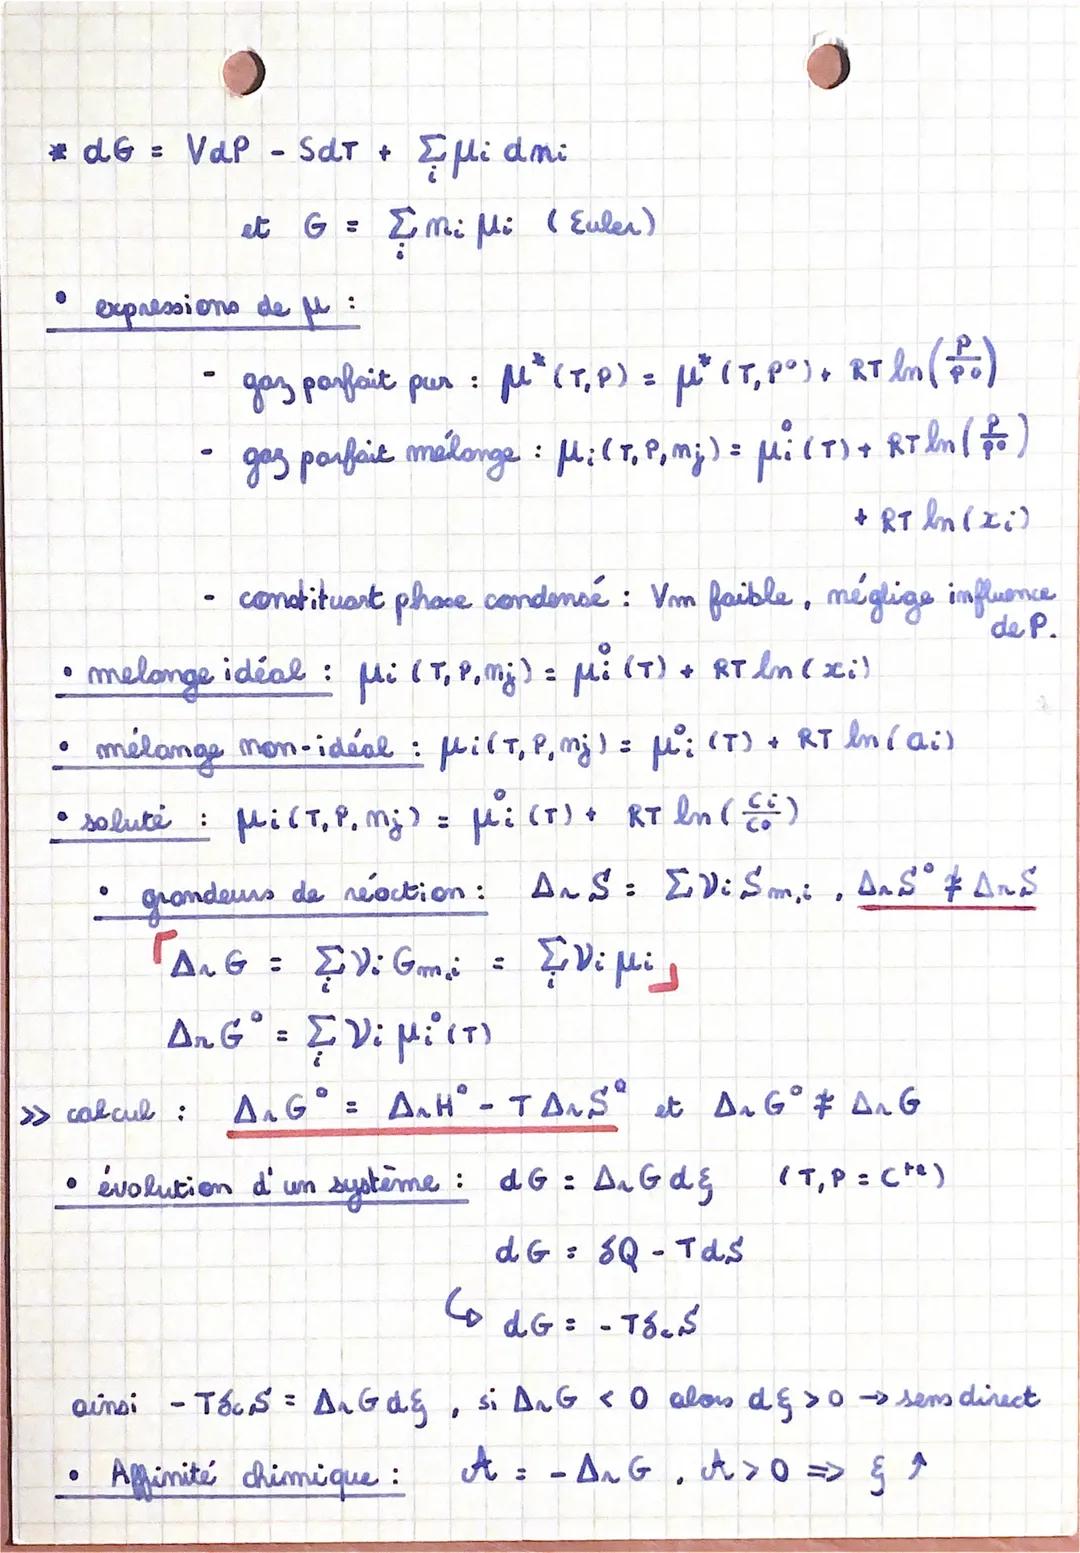 * dG = VdP - SdT + Σi μi dni
et G = Σi ni μi (Euler)
• expressions de μ :
- gaz parfait pur : μ*(T,P) = μ*(T,P°) + RT ln(P/P°)
- gaz parfait mélange : μi(T,P,nj) = μi°(T) + RT ln(P/P°)
+ RT ln(xi)
- constituant phase condensé : Vm faible, néglige influence
de P.
• melange idéal : μi(T,P,nj) = μi°(T) + RT ln(xi)
• mélange non-idéal : μi(T,P,nj) = μ°i(T) + RT ln(ai)
• soluté : μi(T,P,nj) = μi°(T) + RT ln(ci/c°)
• grandeurs de réaction : ΔrS = Σνi Sm,i , ΔrS° ≠ ΔrS
ΔrG = Σi νi Gm,i = Σi νi μi
ΔrG° = Σi νi μi°(T)
>> calcul : ΔrG° = ΔrH° - TΔrS° et ΔrG° ≠ ΔrG
• évolution d'un système : dG = ΔrG dξ (T,P = Cte)
dG = δQ - TdS
↳ dG = - TδcS
ainsi - TδcS = ΔrG dξ , si ΔrG < 0 alors dξ > 0 → sens direct
• Affinité chimique : A = - ΔrG , A > 0 => ξ ↑